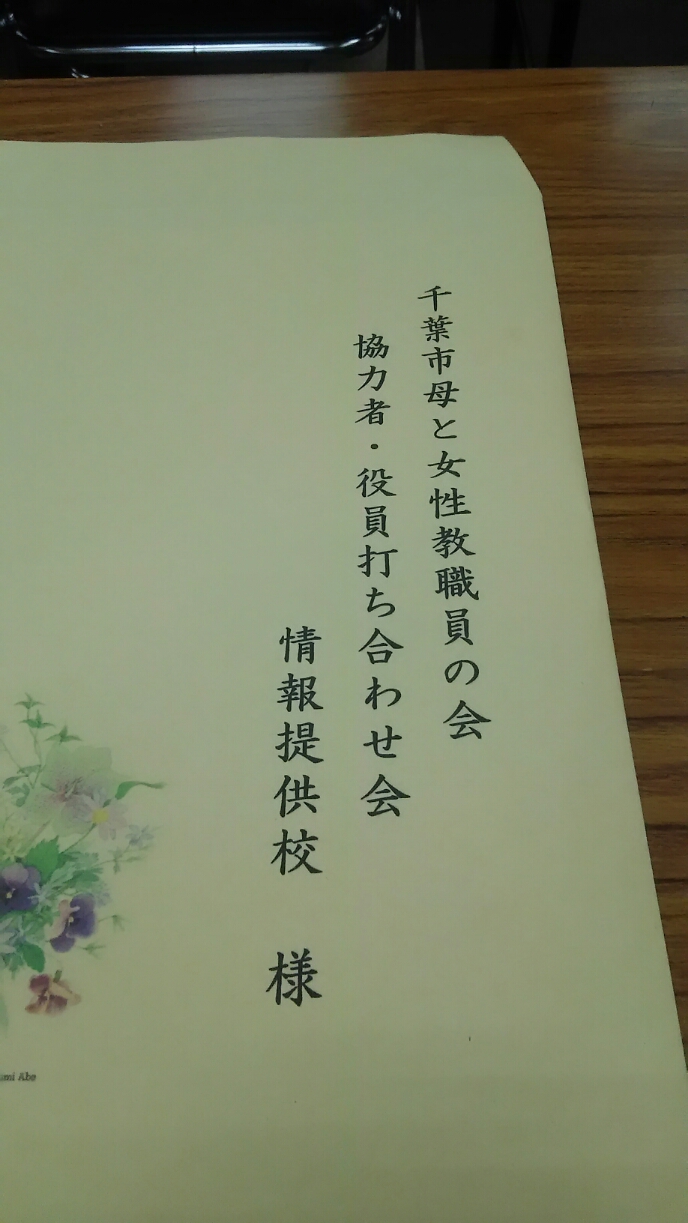 千葉市母と女性教職員の会
協力者・役員打ち合わせ会
情報提供校　様
Abe